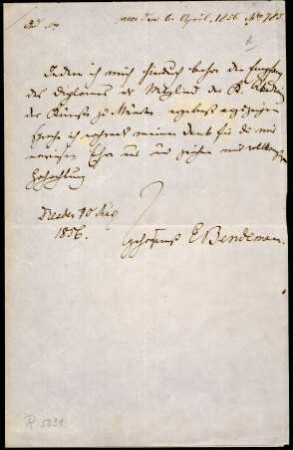 den 6. April, 1856. No 785.
Indem ich mich hiedurch beehre den Empfang
des Diploms als Mitglied der K. Akademie
der Künste zu München ergebenst anzuzeigen
spreche ich meinen Dank für die mir
erwiesene Ehre aus und zeichne mit
Hochachtung
Dresden 10 Aug
1856.
E Bendemann.
R 5031